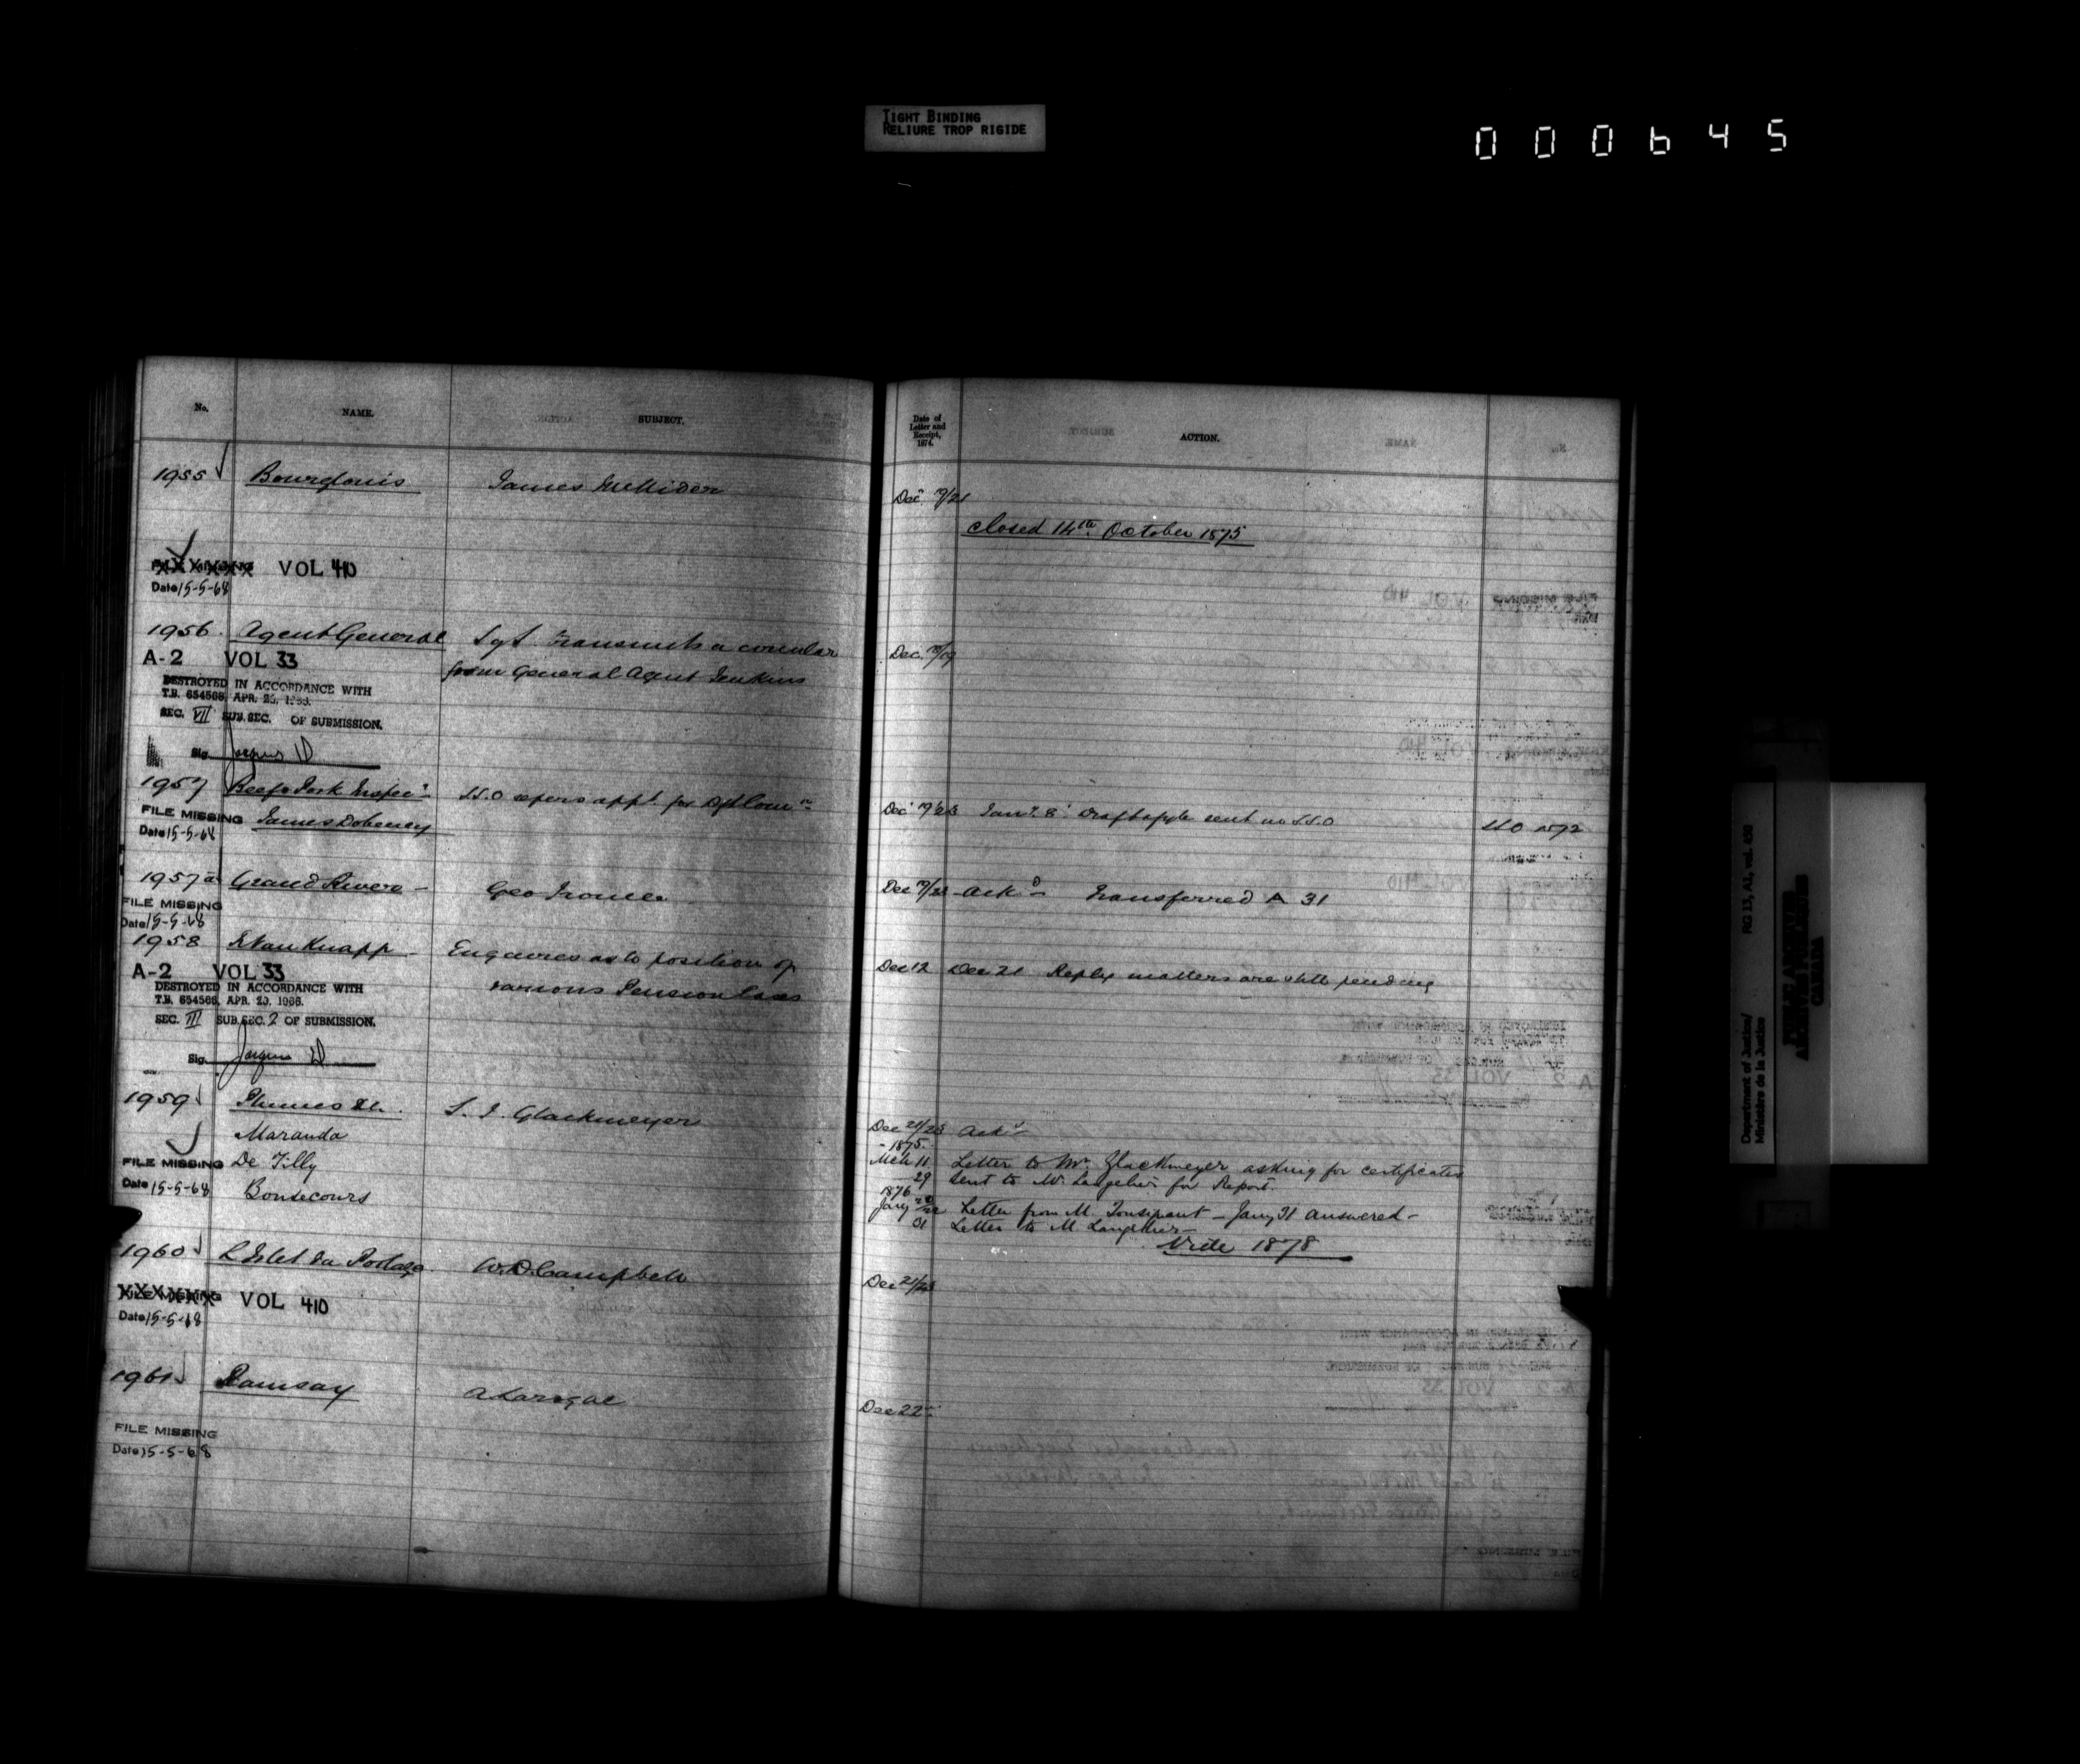 TIGHT BINDING
RELIURE TROP RIGIDE
000645
No. NAME. SUBJECT.
1955 Bourglouis James McNider
FILE MISSING XXXXXX VOL 410
Date 15-5-68
1956 Agent General Sgt. transmits a circular
from General Agent Jenkins
A-2 VOL 33
DESTROYED IN ACCORDANCE WITH
T.B. 654566, APR. 1966.
SEC. VII SUB.SEC. OF SUBMISSION.
Sig.
1957 Beef & Pork Inspecr S.S.O appt. for
FILE MISSING James Doheney
Date 15-5-68
1957a Grand River - Geo
FILE MISSING
Date 15-5-68
1958 Knapp - Enquires as to position of
various Pension Cases
A-2 VOL 33
DESTROYED IN ACCORDANCE WITH
T.B. 654566, APR. 1966.
SEC. III SUB.SEC. 2 OF SUBMISSION.
Sig.
1959 Glackmeyer
Maranda
FILE MISSING De Tilly
Date 15-5-68 Bonsecours
1960 L'Islet du Portage W.D. Campbell
FILE MISSING XXXXXX VOL 410
Date 15-5-68
1961 Ramsay A Larocque
FILE MISSING
Date 15-5-68
Date of
Letter and
Receipt,
1874.
ACTION.
Dec 17/21
closed 14th October 1875
Dec. 18/19
Dec 19/23 Jany. 8 Draft sent to S.S.O 1572
Dec 17/22 Ackd Transferred A 31
Dec 12 Dec 21 Reply matters are still pending
Dec 21/23 Ackd
- 1875 -
Mch 11 Letter to Mr. Glackmeyer asking for certificates
29 Sent to Mr Langelier for Report.
1876
Jany 22 Letter from M. Tousignant - Jany 31 answered -
31 Letter to M Langelier -
Vide 1878
Dec 21/23
Dec 22
Department of Justice/
Ministère de la Justice
RG 13, A1, vol. 450
PUBLIC ARCHIVES
ARCHIVES PUBLIQUES
CANADA